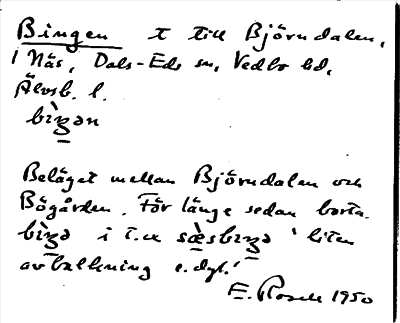 Bingen t till Björndalen,
i Näs, Dals-Eds sn, Vedbo hd,
Älvsb. l.
bìŋən
Beläget mellan Björndalen och
Bögården. För länge sedan borta.
bìŋə i t.ex sæ̀sbiŋə 'liten
avbalkning e.dyl.'
E. Rosell 1950